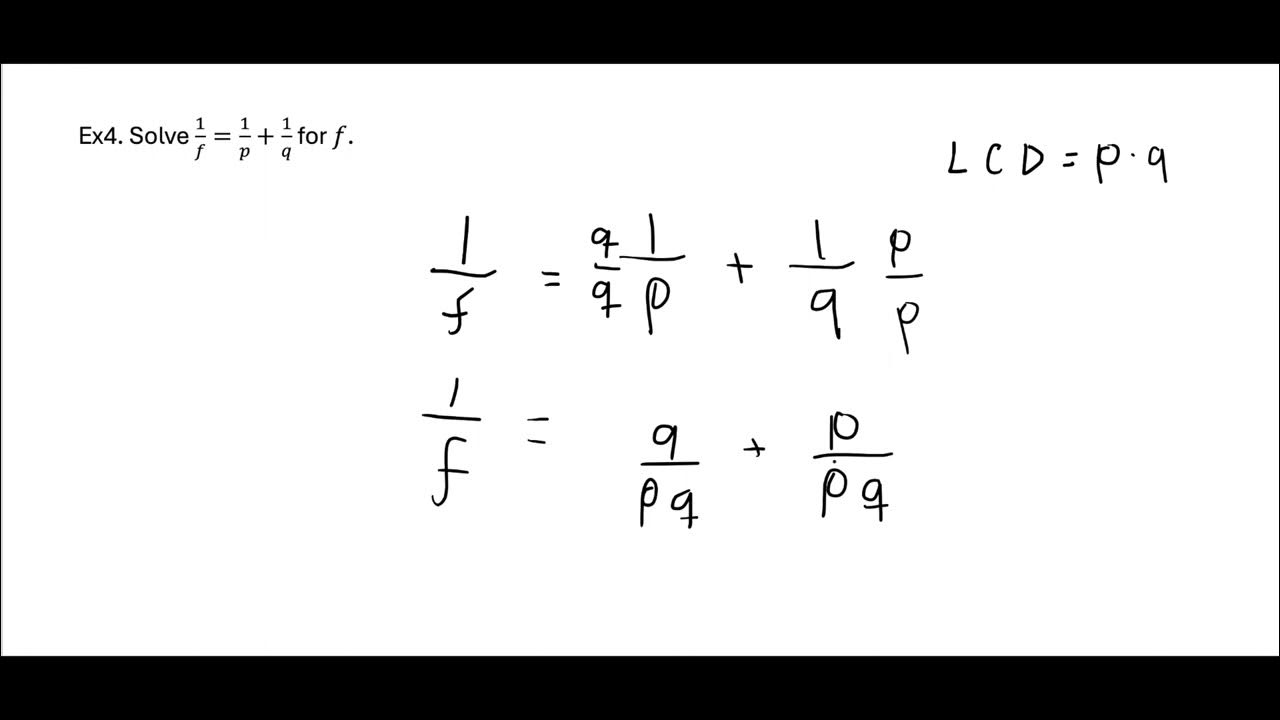 Ex4. Solve 1/f = 1/p + 1/q for f.
LCD = p · q
1/f = q/q 1/p + 1/q p/p
1/f = q/pq + p/pq